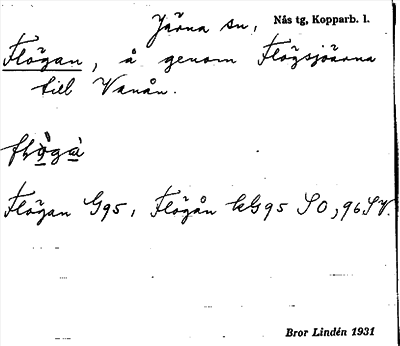 Järna sn, Nås tg, Kopparb. l.
Flögan, å genom Flögsjöarna
till Vanån.
Flögan G95, Flögån kG95 SO, 96SV.
Bror Lindén 1931